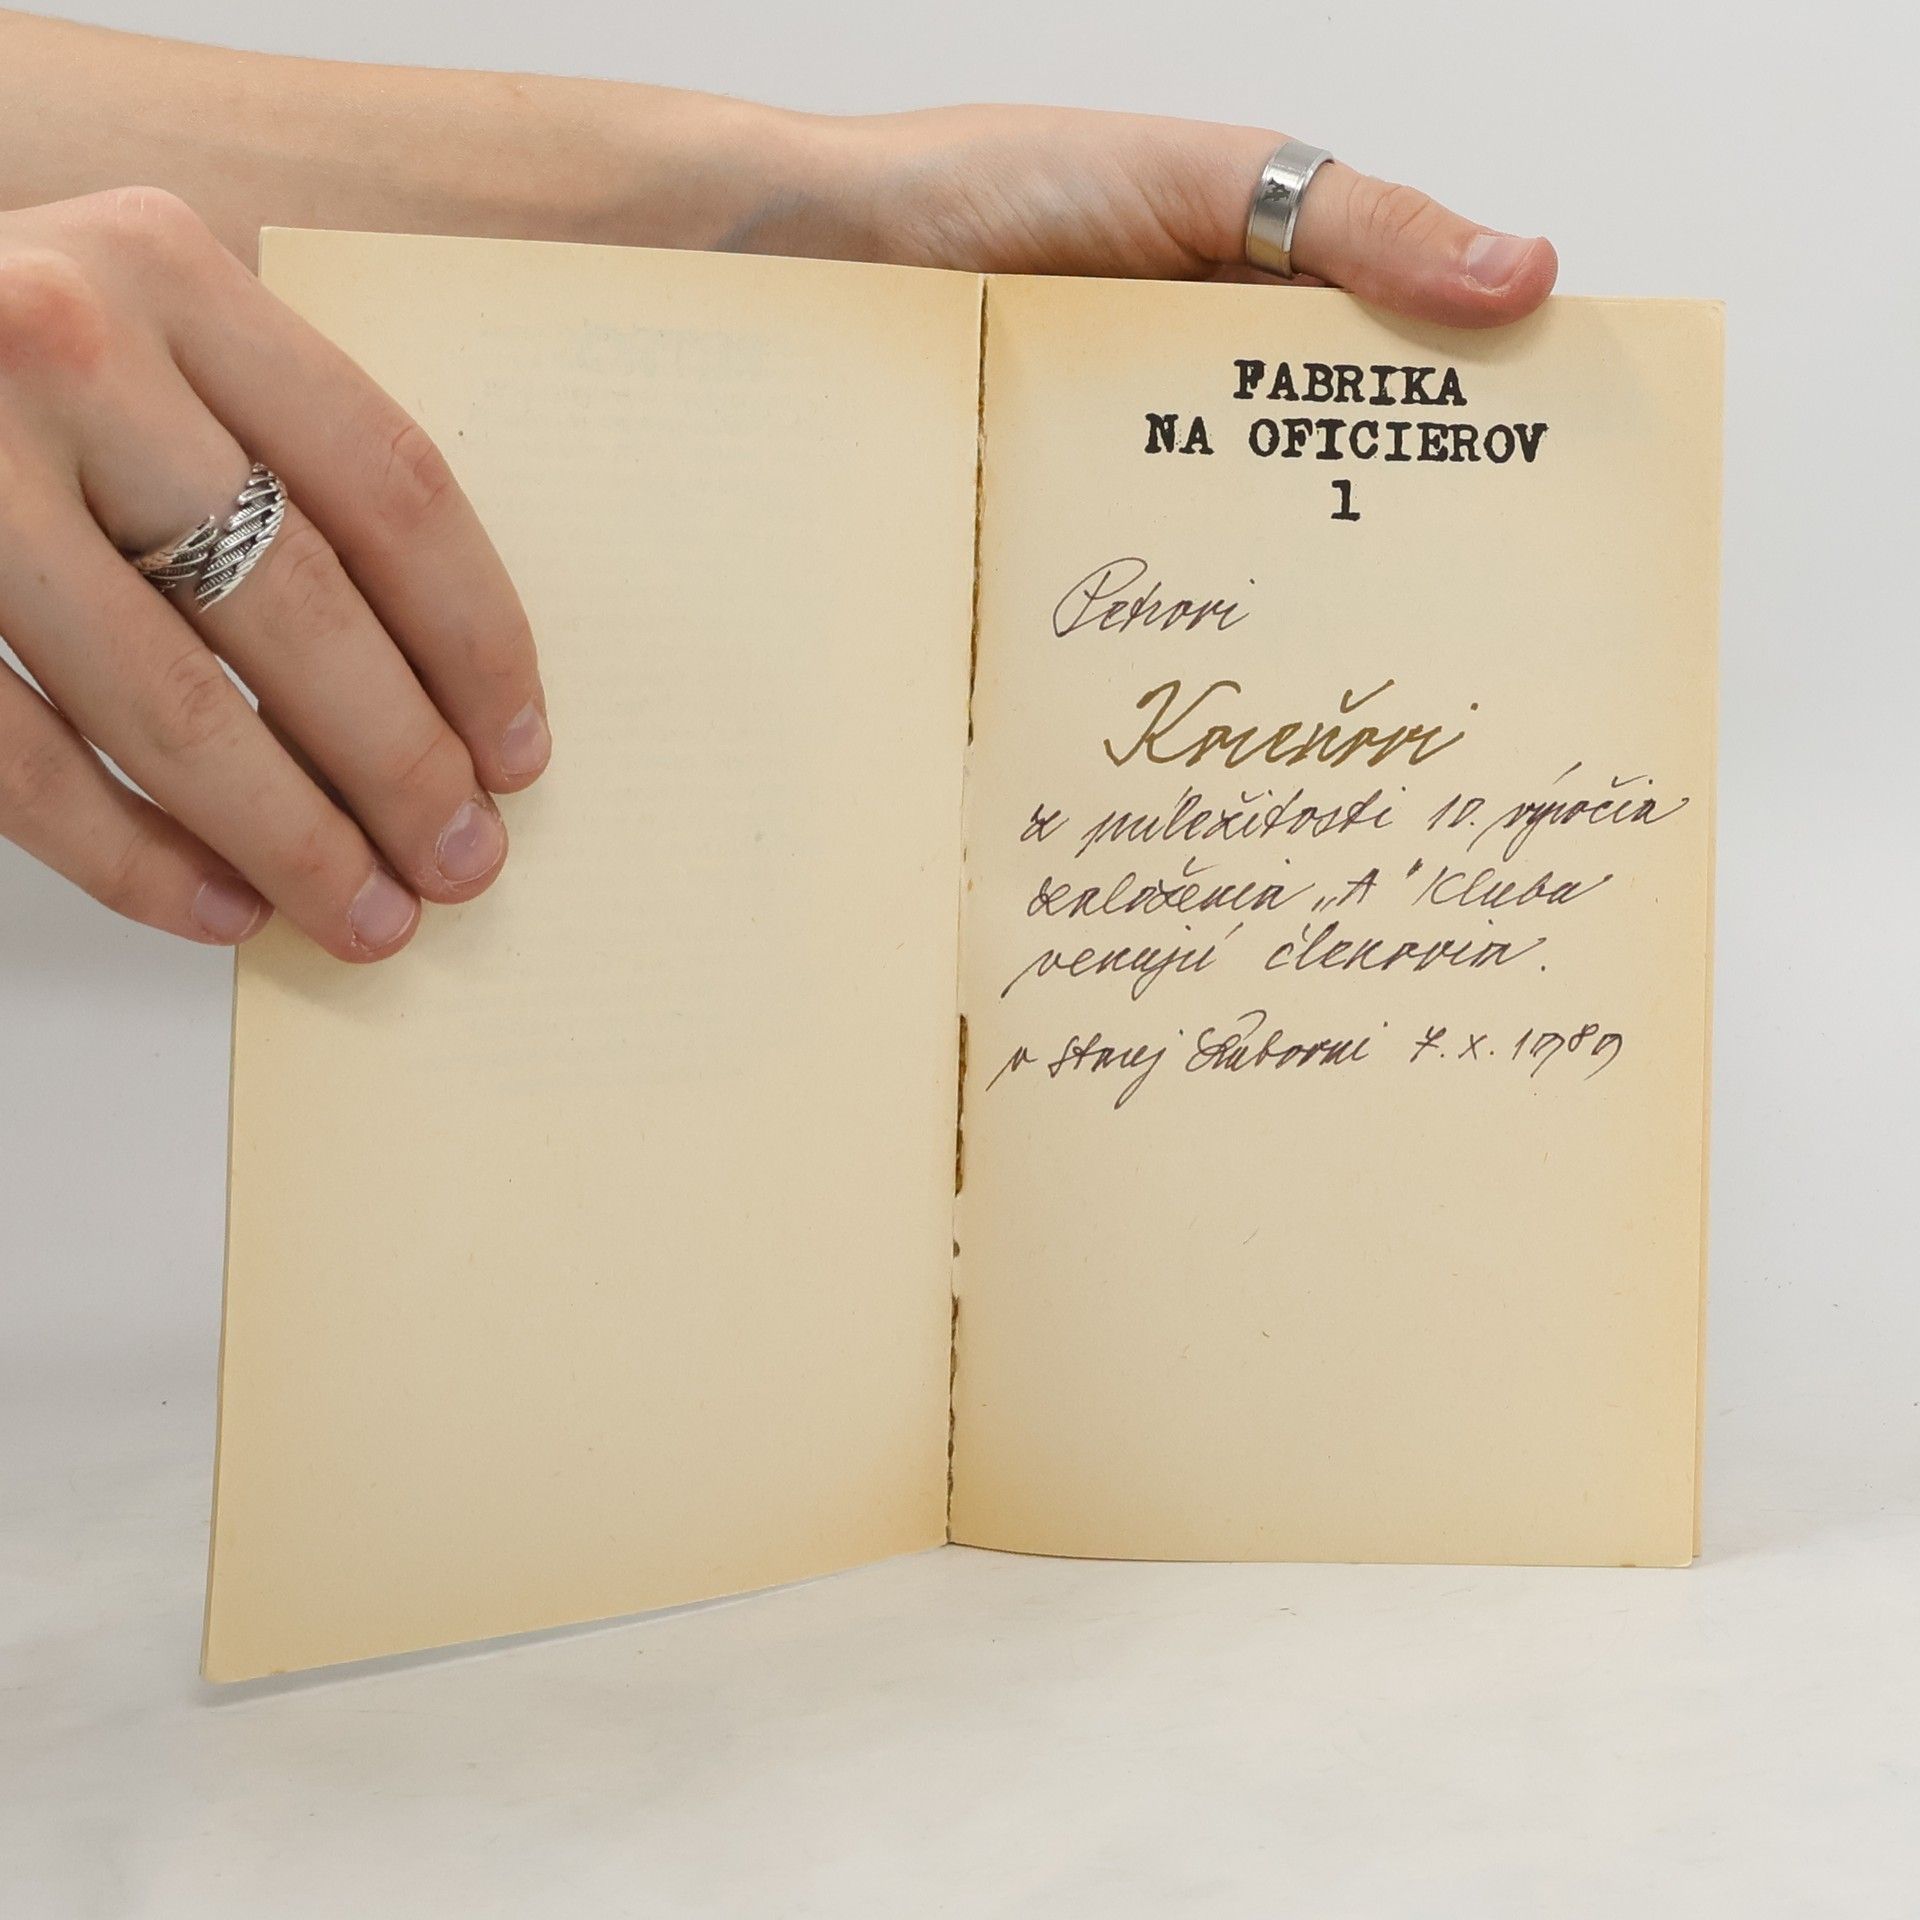 FABRIKA
NA OFICIEROV
1
Petrovi
Koreňovi
z príležitosti 10. výročia
založenia „A" Klubu
venujú členovia.
v Starej Ľubovni 7. X. 1989